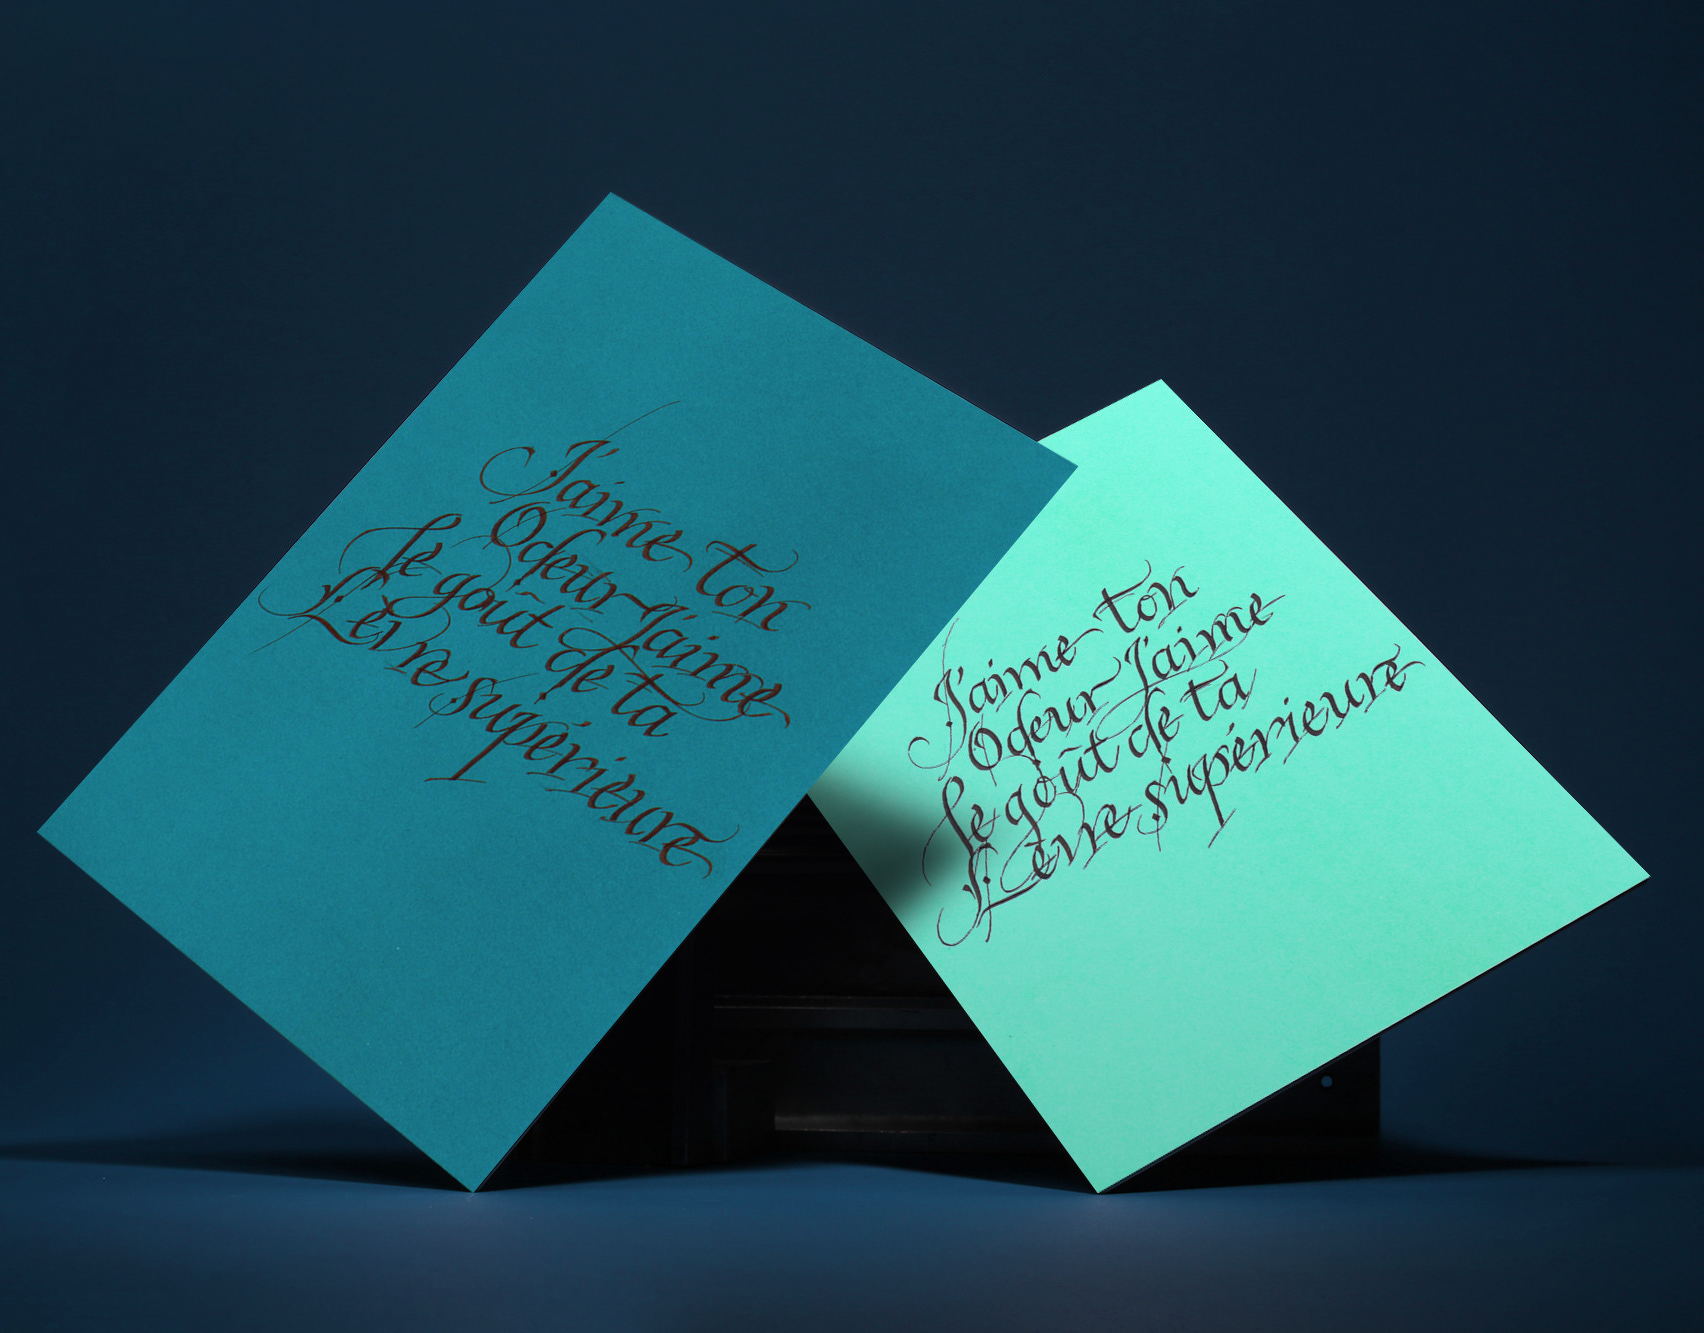 J'aime ton
Odeur J'aime
le goût de ta
Lèvre supérieure
J'aime ton
Odeur J'aime
le goût de ta
Lèvre supérieure